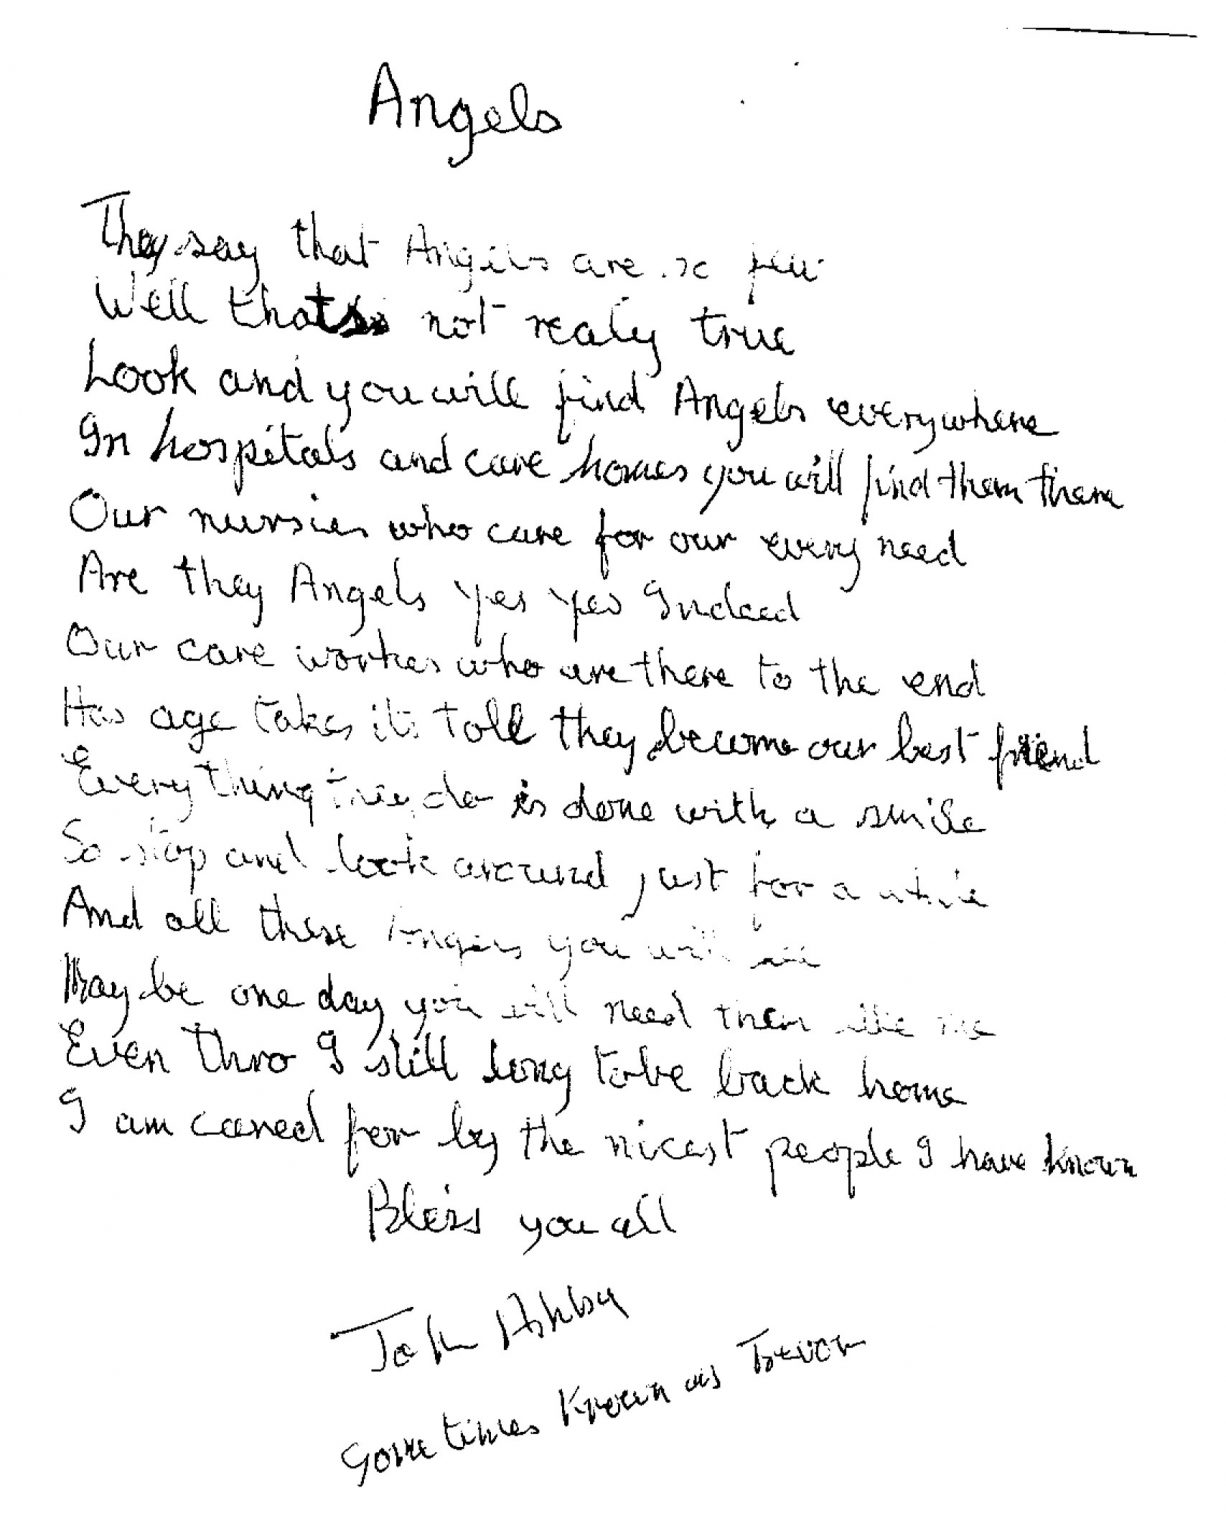 Angels
They say that Angels are so few
Well thats not realy true
Look and you will find Angels everywhere
In hospitals and care homes you will find them there
Our nursies who care for our every need
Are they Angels yes yes Indeed
Our care workes who are there to the end
Has age takes its toll they become our best friend
Everything they do is done with a smile
So stop and look around just for a while
And all these Angels you will see
May be one day you will need them like me
Even thro I still long to be back home
I am cared for by the nicest people I have known
Bless you all
John Ashby
Sometimes known as Trevor